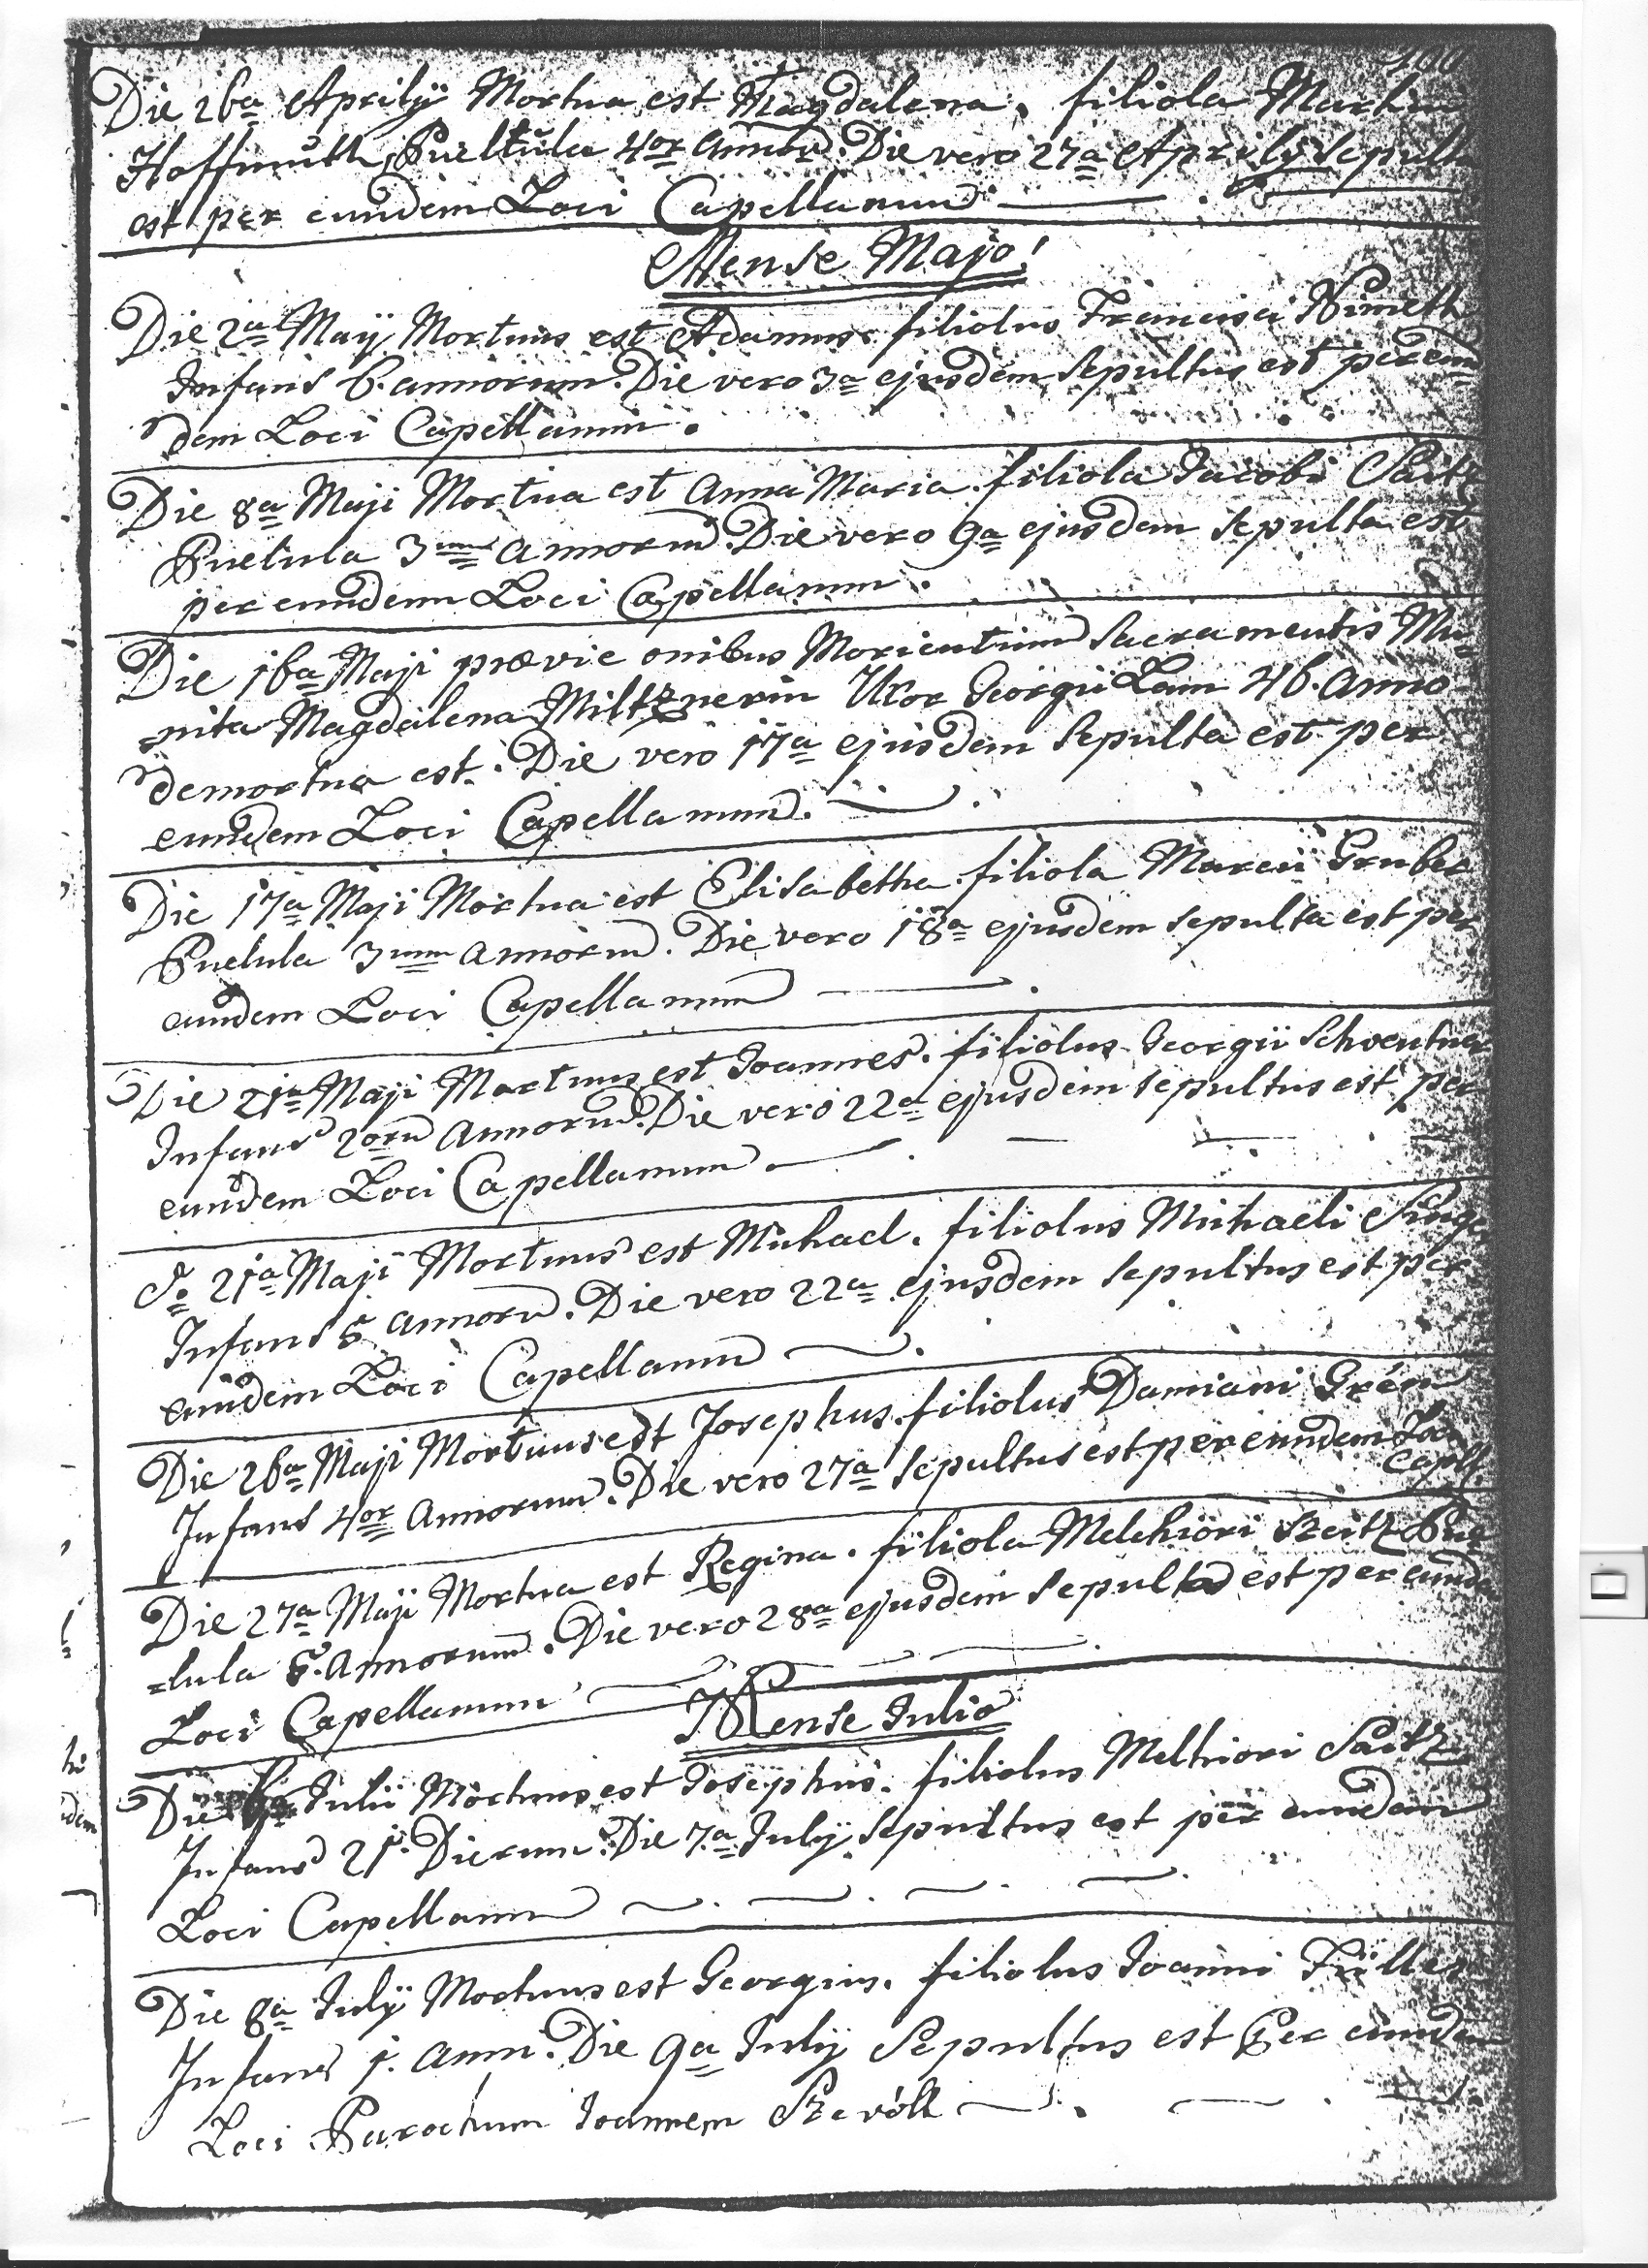 Die 26a Aprilÿ Mortua est Magdalena. filiola Martini
Hoffmuth, Puellula 4or annorū. Die vero 27a Aprilÿ Sepulta
est per eundem Loci Capellanum.
Mense Majo
Die 2a Maÿ Mortuus est Adamus. filiolus Francisci Nimeth
Infans 6. annorum. Die vero 3a ejusdem Sepultus est per eun
dem Loci Capellanum.
Die 8a Maji Mortua est Anna Maria. filiola Jacobi Saitz
Puelula 3um annorum. Die vero 9a ejusdem Sepulta est
per eundem Loci Capellanum.
Die 16a Maji prævie onibus Morientium Sacramentis Mu=
=nita Magdalena Miltznerin Uxor Georgii Lam 46. anno
demortua est. Die vero 17a ejusdem Sepulta est per
eundem Loci Capellanum.
Die 17a Maji Mortua est Elisabetha. filiola Marcii Gruber
Puelula 3um annorum. Die vero 18a ejusdem sepulta est per
eundem Loci Capellanum
Die 21a Maji Mortuus est Joannes. filiolus Georgii Schventner
Infans 2orū annorum. Die vero 22a ejusdem sepultus est per
eundem Loci Capellanum
21a Maji Mortuus est Michael. filiolus Michaeli
Infans 5 annorū. Die vero 22a ejusdem sepultus est per
eundem Loci Capellanum
Die 26a Maji Mortuus est Josephus. filiolus Damiani
Infans 4or annorum. Die vero 27a Sepultus est per eundem Loci
Capll.
Die 27a Maji Mortua est Regina. filiola Melchiori Szeitz Pue
=lula 5. annorum. Die vero 28a ejusdem sepulta est per eunde
Loci Capellanum
Mense Julio
Die Julii Mortuus est Josephus. filiolus Melhiori Saitz
Infans 21. Dierum. Die 7.a Julÿ Sepultus est per eundem
Loci Capellanum
Die 8a Julÿ Mortuus est Georgius. filiolus Joanni Füller
Infans 1. anni. Die 9a Julÿ Sepultus est Per eundem
Loci Parochum Joannem